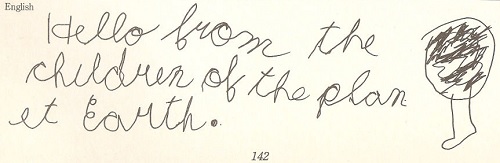 English
Hello from the
children of the plan
et Earth.
142